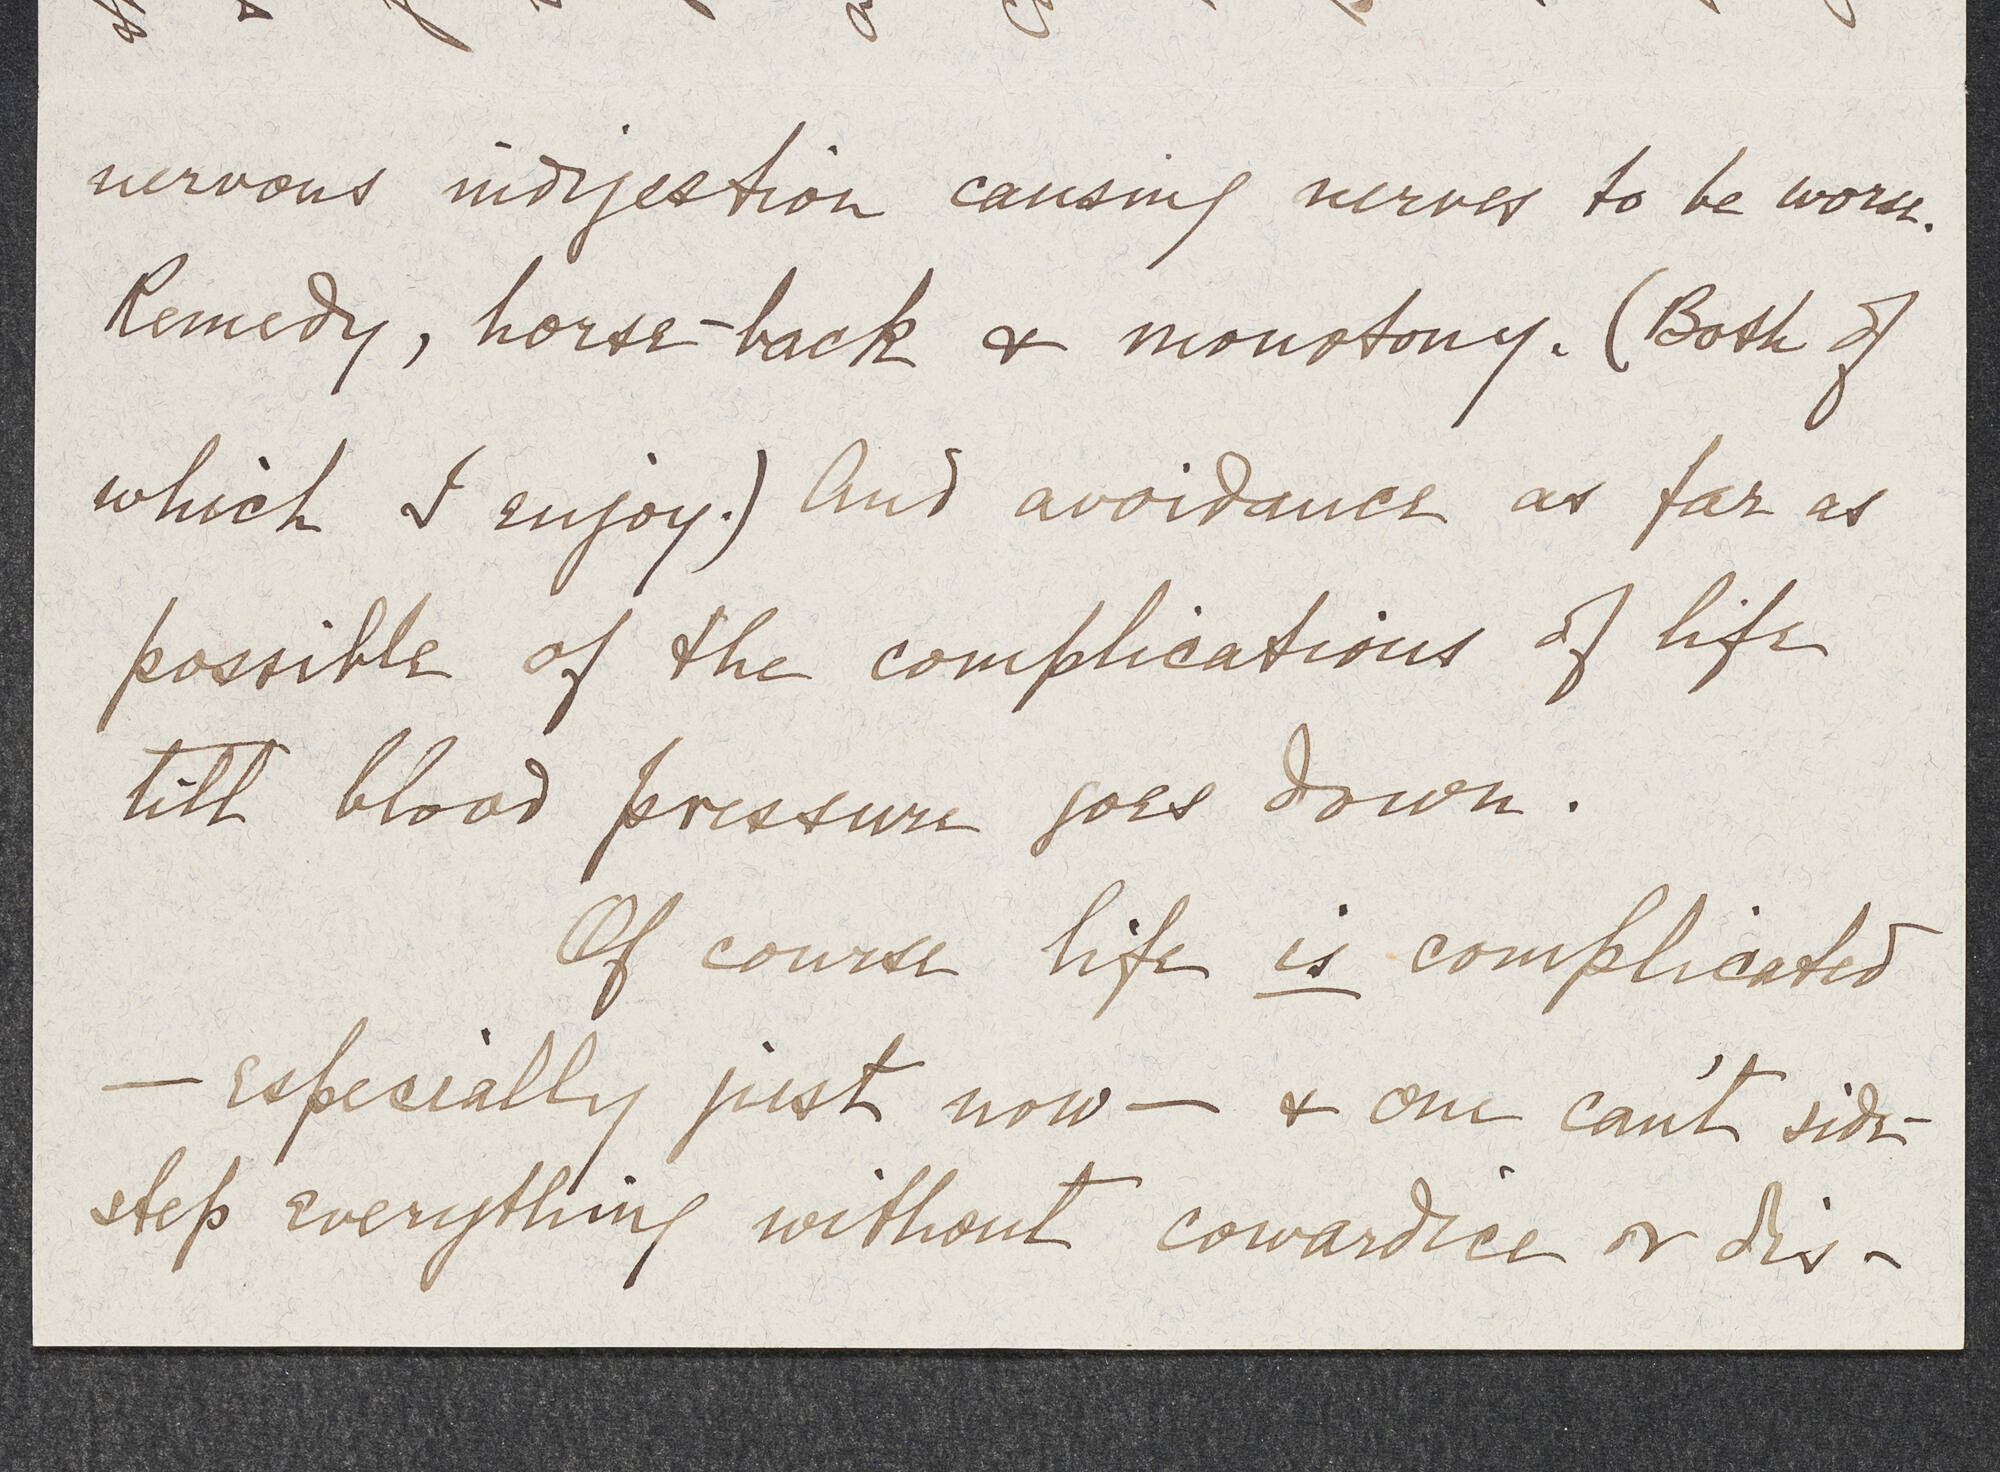 nervous indigestion causing nerves to be worse.
Remedy, horse-back & monotony. (Both of
which I enjoy.) And avoidance as far as
possible of the complications of life
till blood pressure goes down.
Of course life is complicated
— especially just now — & one can't side-
step everything without cowardice or dis-